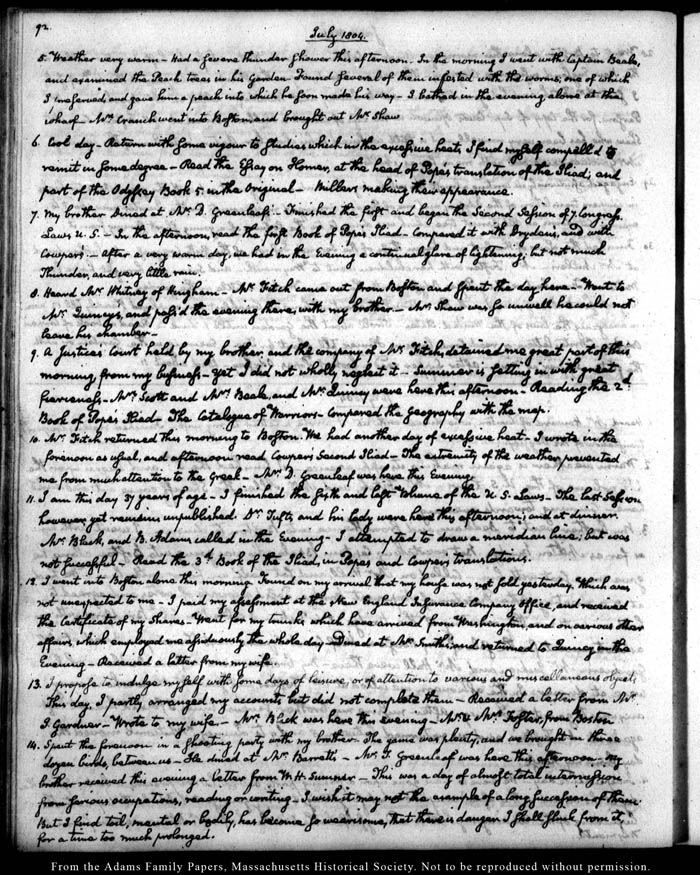 92.
July 1804.
5. Weather very warm — Had a severe thunder shower this afternoon. In the morning I went with Captain Beale,
and examined the Peach trees in his Garden Found several of them infested with the worms; one of which
I preserved, and gave him a peach into which he soon made his way — I bathed in the evening alone at the
wharf — Mrs Cranch went into Boston, and brought out Mr Shaw
6. Cool day — Return with some vigour to studies which in the excessive heat, I find myself compell'd to
remit in some degree — Read the Essay on Homer, at the head of Pope's translation of the Iliad; and
part of the Odyssey Book 5. in the Original — Millers making their appearance.
7. My brother dined at Mr D. Greenleaf's — Finished the first and began the Second Session of 7. Congress.
Laws U.S. — In the afternoon, read the first Book of Pope's Iliad — Compared it with Dryden's, and with
Cowper's — After a very warm day, we had in the Evening a continual glare of lightening; but not much
Thunder, and very little rain.
8. Heard Mr Whitney of Hingham — Mr Fitch came out from Boston and spent the day here — Went to
Mr Quincy's, and pass'd the evening there, with my brother — Mr Shaw was so unwell he could not
leave his chamber —
9. A Justice's Court held by my brother, and the company of Mr Fitch, detained me great part of this
morning from my business — yet I did not wholly neglect it — Summer is setting in with great
— Mrs Scott and Mrs Beale, and Mr Quincy were here this afternoon — Reading the 2d
Book of Pope's Iliad — The Catalogue of Warriors — Compared the geography with the map.
10. Mr Fitch returned this morning to Boston. We had another day of excessive heat — I wrote in the
forenoon as usual, and afternoon read Cowper's Second Iliad — The extremity of the weather prevented
me from much attention to the Greek — Mr D. Greenleaf was here this Evening
11. I am this day 37 years of age — I finished the sixth and last Volume of the U.S. Laws — The last Session
however yet remains unpublished. Dr Tufts, and his lady were here this afternoon; and at dinner.
Mr Black, and B. Adams called in the Evening — I attempted to draw a meridian line; but was
not successful — Read the 3d Book of the Iliad, in Pope's and Cowper's translations.
12. I went into Boston alone this morning. Found on my arrival that my house was not sold yesterday. Which was
not unexpected to me — I paid my assessment at the New England Insurance Company Office, and received
the Certificate of my Shares — Went for my trunks which have arrived from Washington, and on various other
affairs which employed me assiduously the whole day — Dined at Mr Smith's; and returned to Quincy in the
Evening — Received a letter from my wife.
13. I propose to indulge myself with some days of leisure, or of attention to various and miscellaneous objects.
This day, I partly arranged my accounts but did not complete them — Received a letter from Mr
J. Gardner — Wrote to my wife — Mr Black was here this evening — Mr & Mrs Foster, from Boston
14. Spent the forenoon in a shooting party with my brother. The game was plenty, and we brought in three
dozen birds, between us — He dined at Mr Barrett's — Mr T. Greenleaf was here this afternoon. My
brother received this evening a letter from W. H. Sumner — This was a day of almost total intermission
from serious occupations, reading or writing — I wish it may not the example of a long succession of them.
But I find toil, mental or bodily, has become so wearisome, that there is danger I shall shrink from it,
for a time too much prolonged.
From the Adams Family Papers, Massachusetts Historical Society. Not to be reproduced without permission.